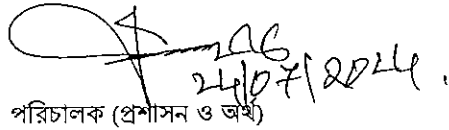 24/07/2024.
পরিচালক (প্রশাসন ও অর্থ)